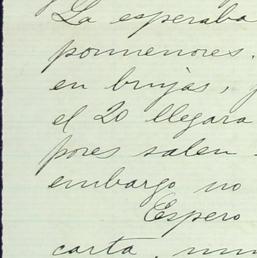 La esperaba
pormenores.
en brujas,
el 20 llegara
pores salen
embargo no
Espero
carta,